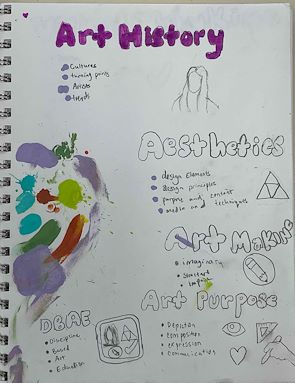 Art History
Cultures
turning points
Artists
trends
Aesthetics
design Elements
design principles
purpose and content
media and techniques
Art Making
imaginary
Art Purpose
Depiction
composition
expression
Communication
DBAE
Discipline
Based
Art
Education